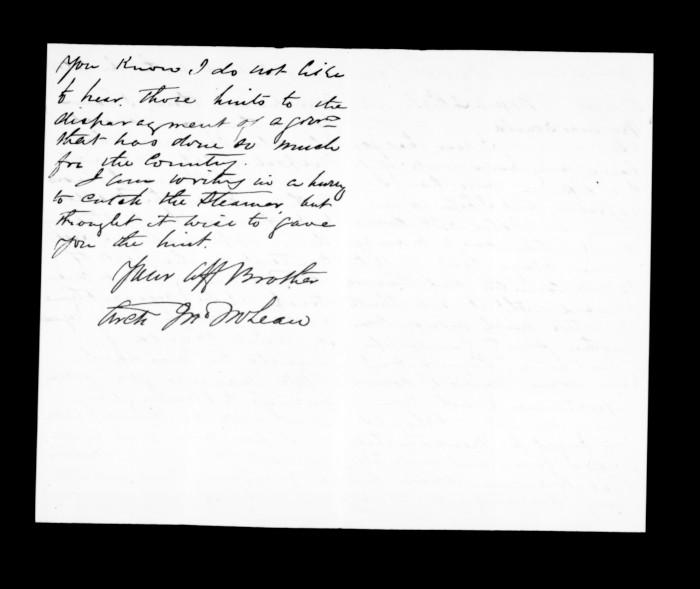 You Know I do not like
to hear those hints to the
disparagment of a govt
that has done so much
for the Country.
I am writing in a hurry
to catch the Steamer but
thought it wise to gave
you the hint.
Your Aff Brother
Arch Jno McLean